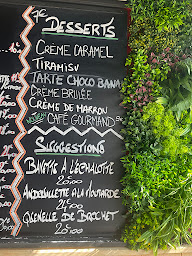 7€
DESSERTS
CREME CARAMEL
TIRAMISU
TARTE CHOCO BANA
CRÈME BRULÉE
CRÈME DE MARRON
CAFÉ GOURMAND
SUGGESTIONS
BAVETTE À L'ÉCHALOTTE
20€00
ANDOUILLETTE A LA MOUTARDE
24€00
QUENELLE DE BROCHET
20€00